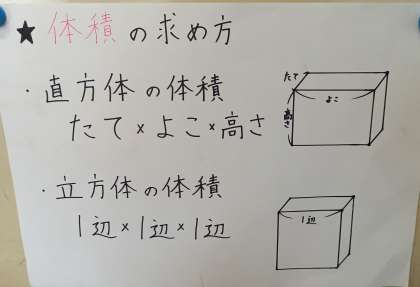 ★体積の求め方
・直方体の体積
たて×よこ×高さ
たて
よこ
高さ
・立方体の体積
1辺×1辺×1辺
1辺